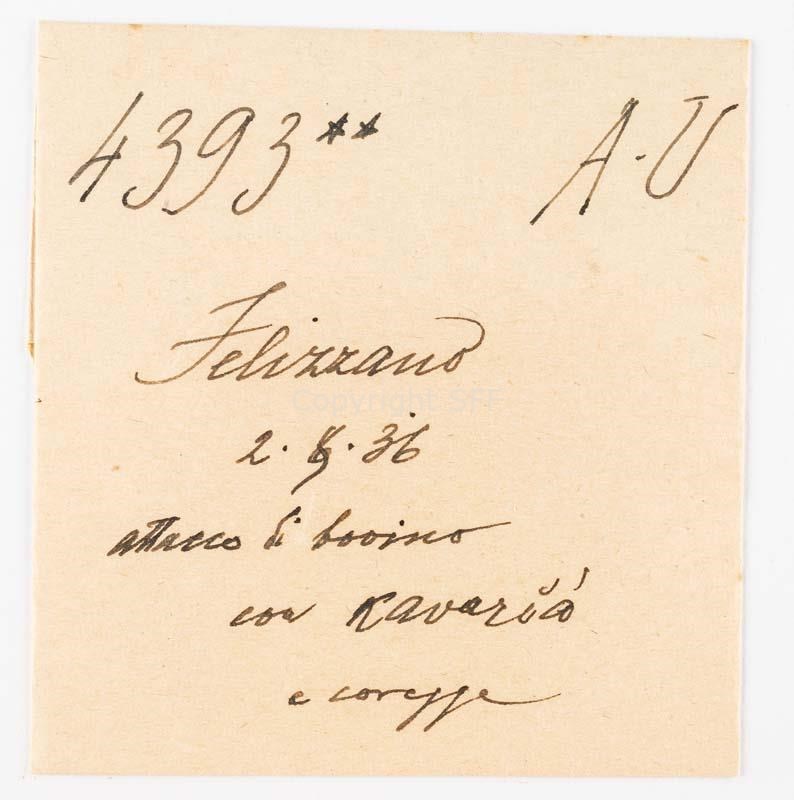 4393** A-U
Felizzano
2. 8. 36
attacco di bovino
con Kavariŏá
e coregge
Copyright SFF